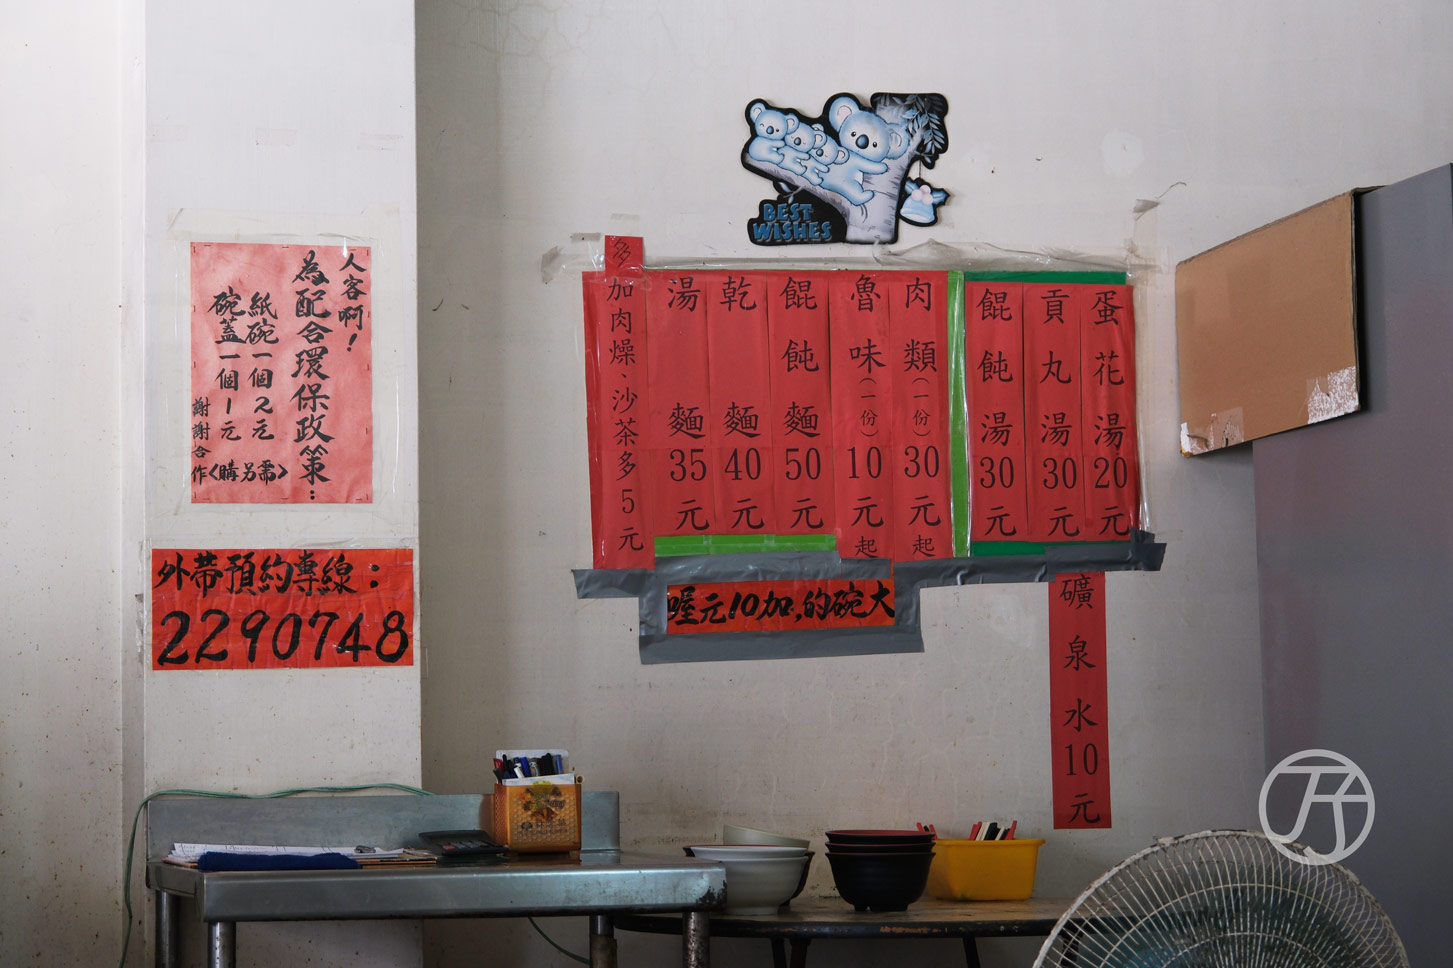 BEST
WISHES
人客啊！
為配合環保政策：
紙碗一個2元
碗蓋一個1元
<需另購>
謝謝合作
外帶預約專線：
2290748
蛋花湯20元
貢丸湯30元
餛飩湯30元
肉類(一份)30元起
魯味(一份)10元起
餛飩麵50元
乾麵40元
湯麵35元
多加肉燥、沙茶多5元
大碗的,加10元喔
礦泉水10元